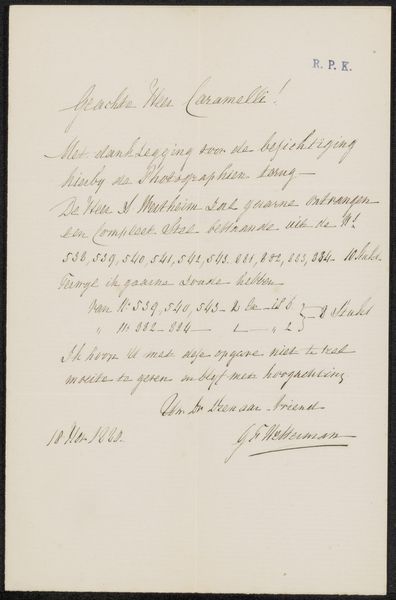 R. P. K.
Geachte Heer Caramelli!
Met dankzegging voor de bezichtiging
hierby de Photographien terug —
De Heer Wertheim zal gaarne ontvangen
een Compleet Stel bestaande uit de No
538, 539, 540, 541, 542, 543. 881, 882, 883, 884 — 10 Stuks
Terwyl ik gaarne zoude hebben
Van No 539, 540, 543 — 2 6
" No 882 - 884 — " 2 8 Stuks
Ik hoop U met deze opgave niet te veel
moeite te geven en blyf met hoogachting
Uw Dr Dienaar Vriend
18 Nov. 1880. G F Westerman